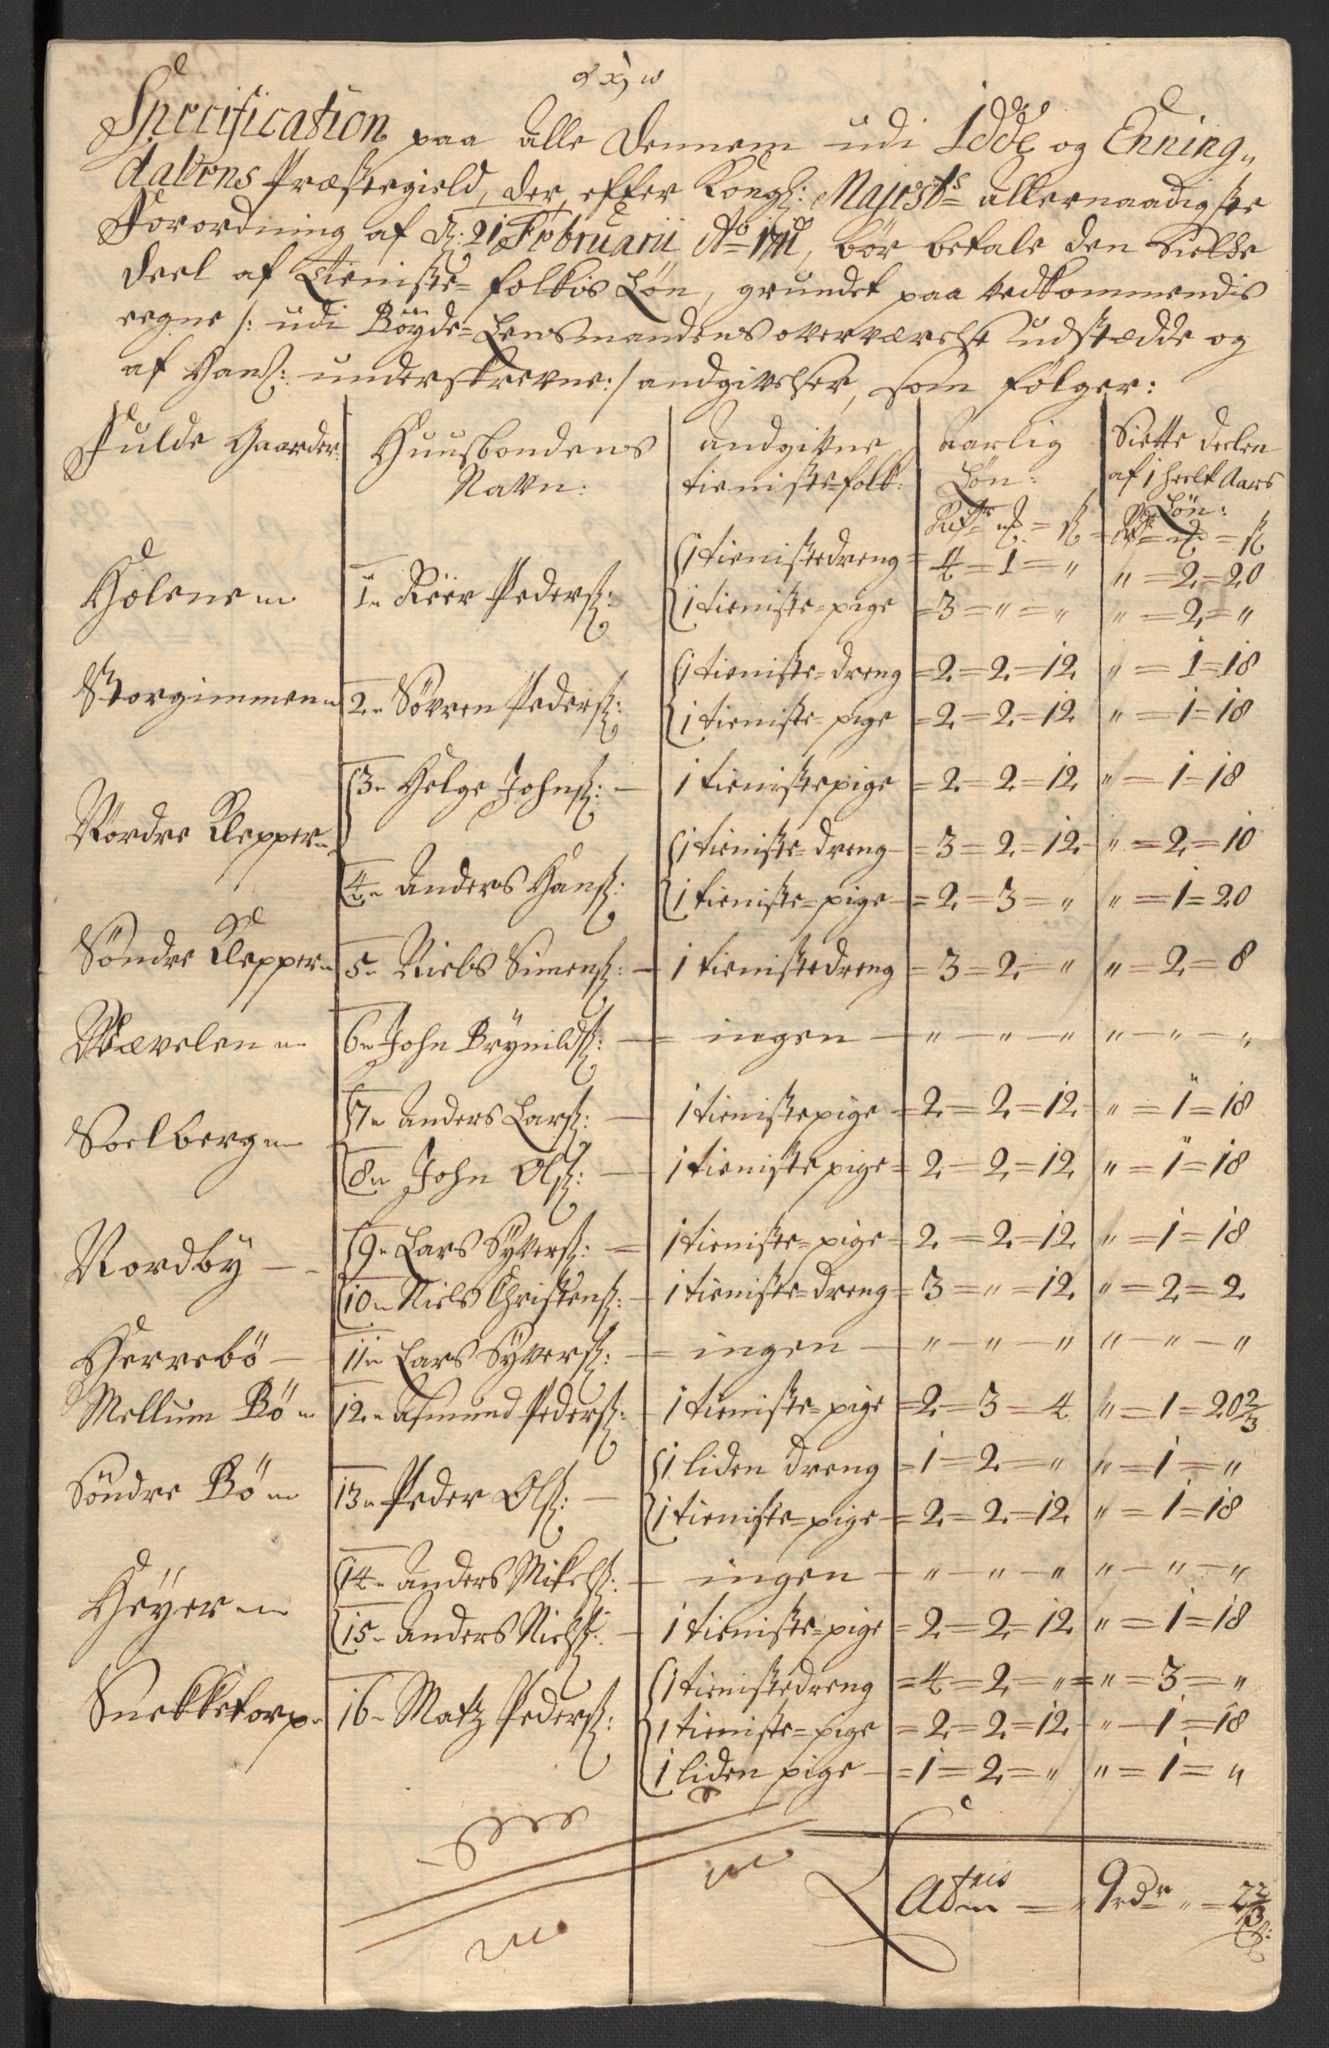 Specification paa alle dennem udi Idde og Enning„
dalens Præstegield, der, efter Kongl: Mayests allernaadigste
Forordning af d: 21 Februarii Ao 1711, bør betale den siette
deel af tieniste= folkis Løn, grundet paa vedkommendis
eegne /: udi Böyde=Lensmandens overværelse udstædde og
af Ham: underskrevne:/ andgivelser, som følger:
Fulde Gaarder. Huusbondens Navn: Andgivne tieniste=folk: Aarlig Løn: Siette deelen af 1 heelt Aars Løn:
Rdr = mk = sk = Rdr = mk = sk
Holene 1 Reer Peders: 1 tienistedreng = 4 = 1 = „ „ = 2 = 20
1 tieniste=pige = 3 = „ = „ „ = 2 = „
Storgimmen 2 Søvren Peders: 1 tieniste=dreng = 2 = 2 = 12 „ = 1 = 18
1 tieniste=pige = 2 = 2 = 12 „ = 1 = 18
Nordre Klepper 3 Helge Johns: 1 tienistepige = 2 = 2 = 12 „ = 1 = 18
4 Anders Hans: 1 tieniste=dreng = 3 = 2 = 12 „ = 2 = 10
1 tieniste=pige = 2 = 3 = „ „ = 1 = 20
Søndre Klepper 5 Niels Simens: 1 tienistedreng = 3 = 2 = „ „ = 2 = 8
6 John Brynilds: ingen „ „ „ „ „ „
Soelberg 7 Anders Lars: 1 tienistepige = 2 = 2 = 12 „ = 1 = 18
8 John Ols: 1 tienistepige = 2 = 2 = 12 „ = 1 = 18
Nordby 9 Lars Syvers: 1 tieniste=pige = 2 = 2 = 12 „ = 1 = 18
10 Niels Christens: 1 tieniste=dreng = 3 = „ = 12 „ = 2 = 2
Herrebö 11 Lars Syvers: ingen „ „ „ „ „ „
Mellum Bö 12 Asmund Peders: 1 tieniste=pige = 2 = 3 = 4 „ = 1 = 20 2/3
Söndre Bö 13 Peder Ols: 1 liden dreng = 1 = 2 = „ „ = 1 = „
1 tieniste=pige = 2 = 2 = 12 „ = 1 = 18
Höyer 14 Anders Mikels: ingen „ „ „ „ „ „
15 Anders Niels: 1 tieniste=pige = 2 = 2 = 12 „ = 1 = 18
Snekketorp 16 Matz Peders: 1 tienistedreng = 4 = 2 = „ = „ = 3 = „
1 tieniste=pige = 2 = 2 = 12 „ = 1 = 18
1 liden pige = 1 = 2 = „ „ = 1 = „
9 rdr „ = 2 2/3